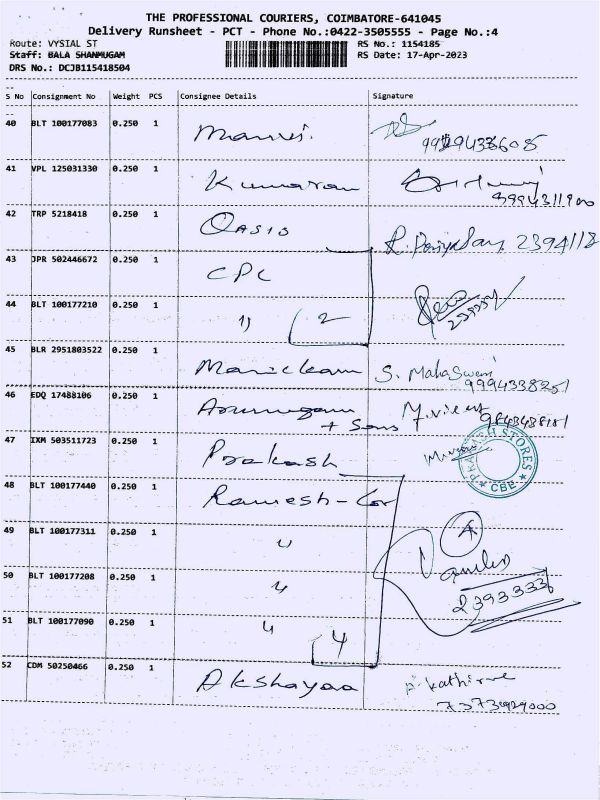 THE PROFESSIONAL COURIERS, COIMBATORE-641045
Delivery Runsheet - PCT - Phone No.:0422-3505555 - Page No.:4
Route: VYSIAL ST RS No.: 1154185
Staff: BALA SHANMUGAM RS Date: 17-Apr-2023
DRS No.: DCJB115418504
S No Consignment No Weight PCS Consignee Details Signature
40 BLT 100177083 0.250 1
41 VPL 125031330 0.250 1 Kumaran
42 TRP 5218418 0.250 1 OASIS
43 JPR 502446672 0.250 1 CPC
44 BLT 100177210 0.250 1 11 2
45 BLR 2951803522 0.250 1 Manickam S. MahaSwami
9994338251
46 EDQ 17488106 0.250 1 Arumugam
+ Sons
47 IXM 503511723 0.250 1 Prakash PRAKASH STORES
★ CBE ★
48 BLT 100177440 0.250 1 Ramesh - Cor
49 BLT 100177311 0.250 1 " 4
50 BLT 100177208 0.250 1 "
2393333
51 BLT 100177090 0.250 1 " 4
52 CDM 50250466 0.250 1 Akshayaa